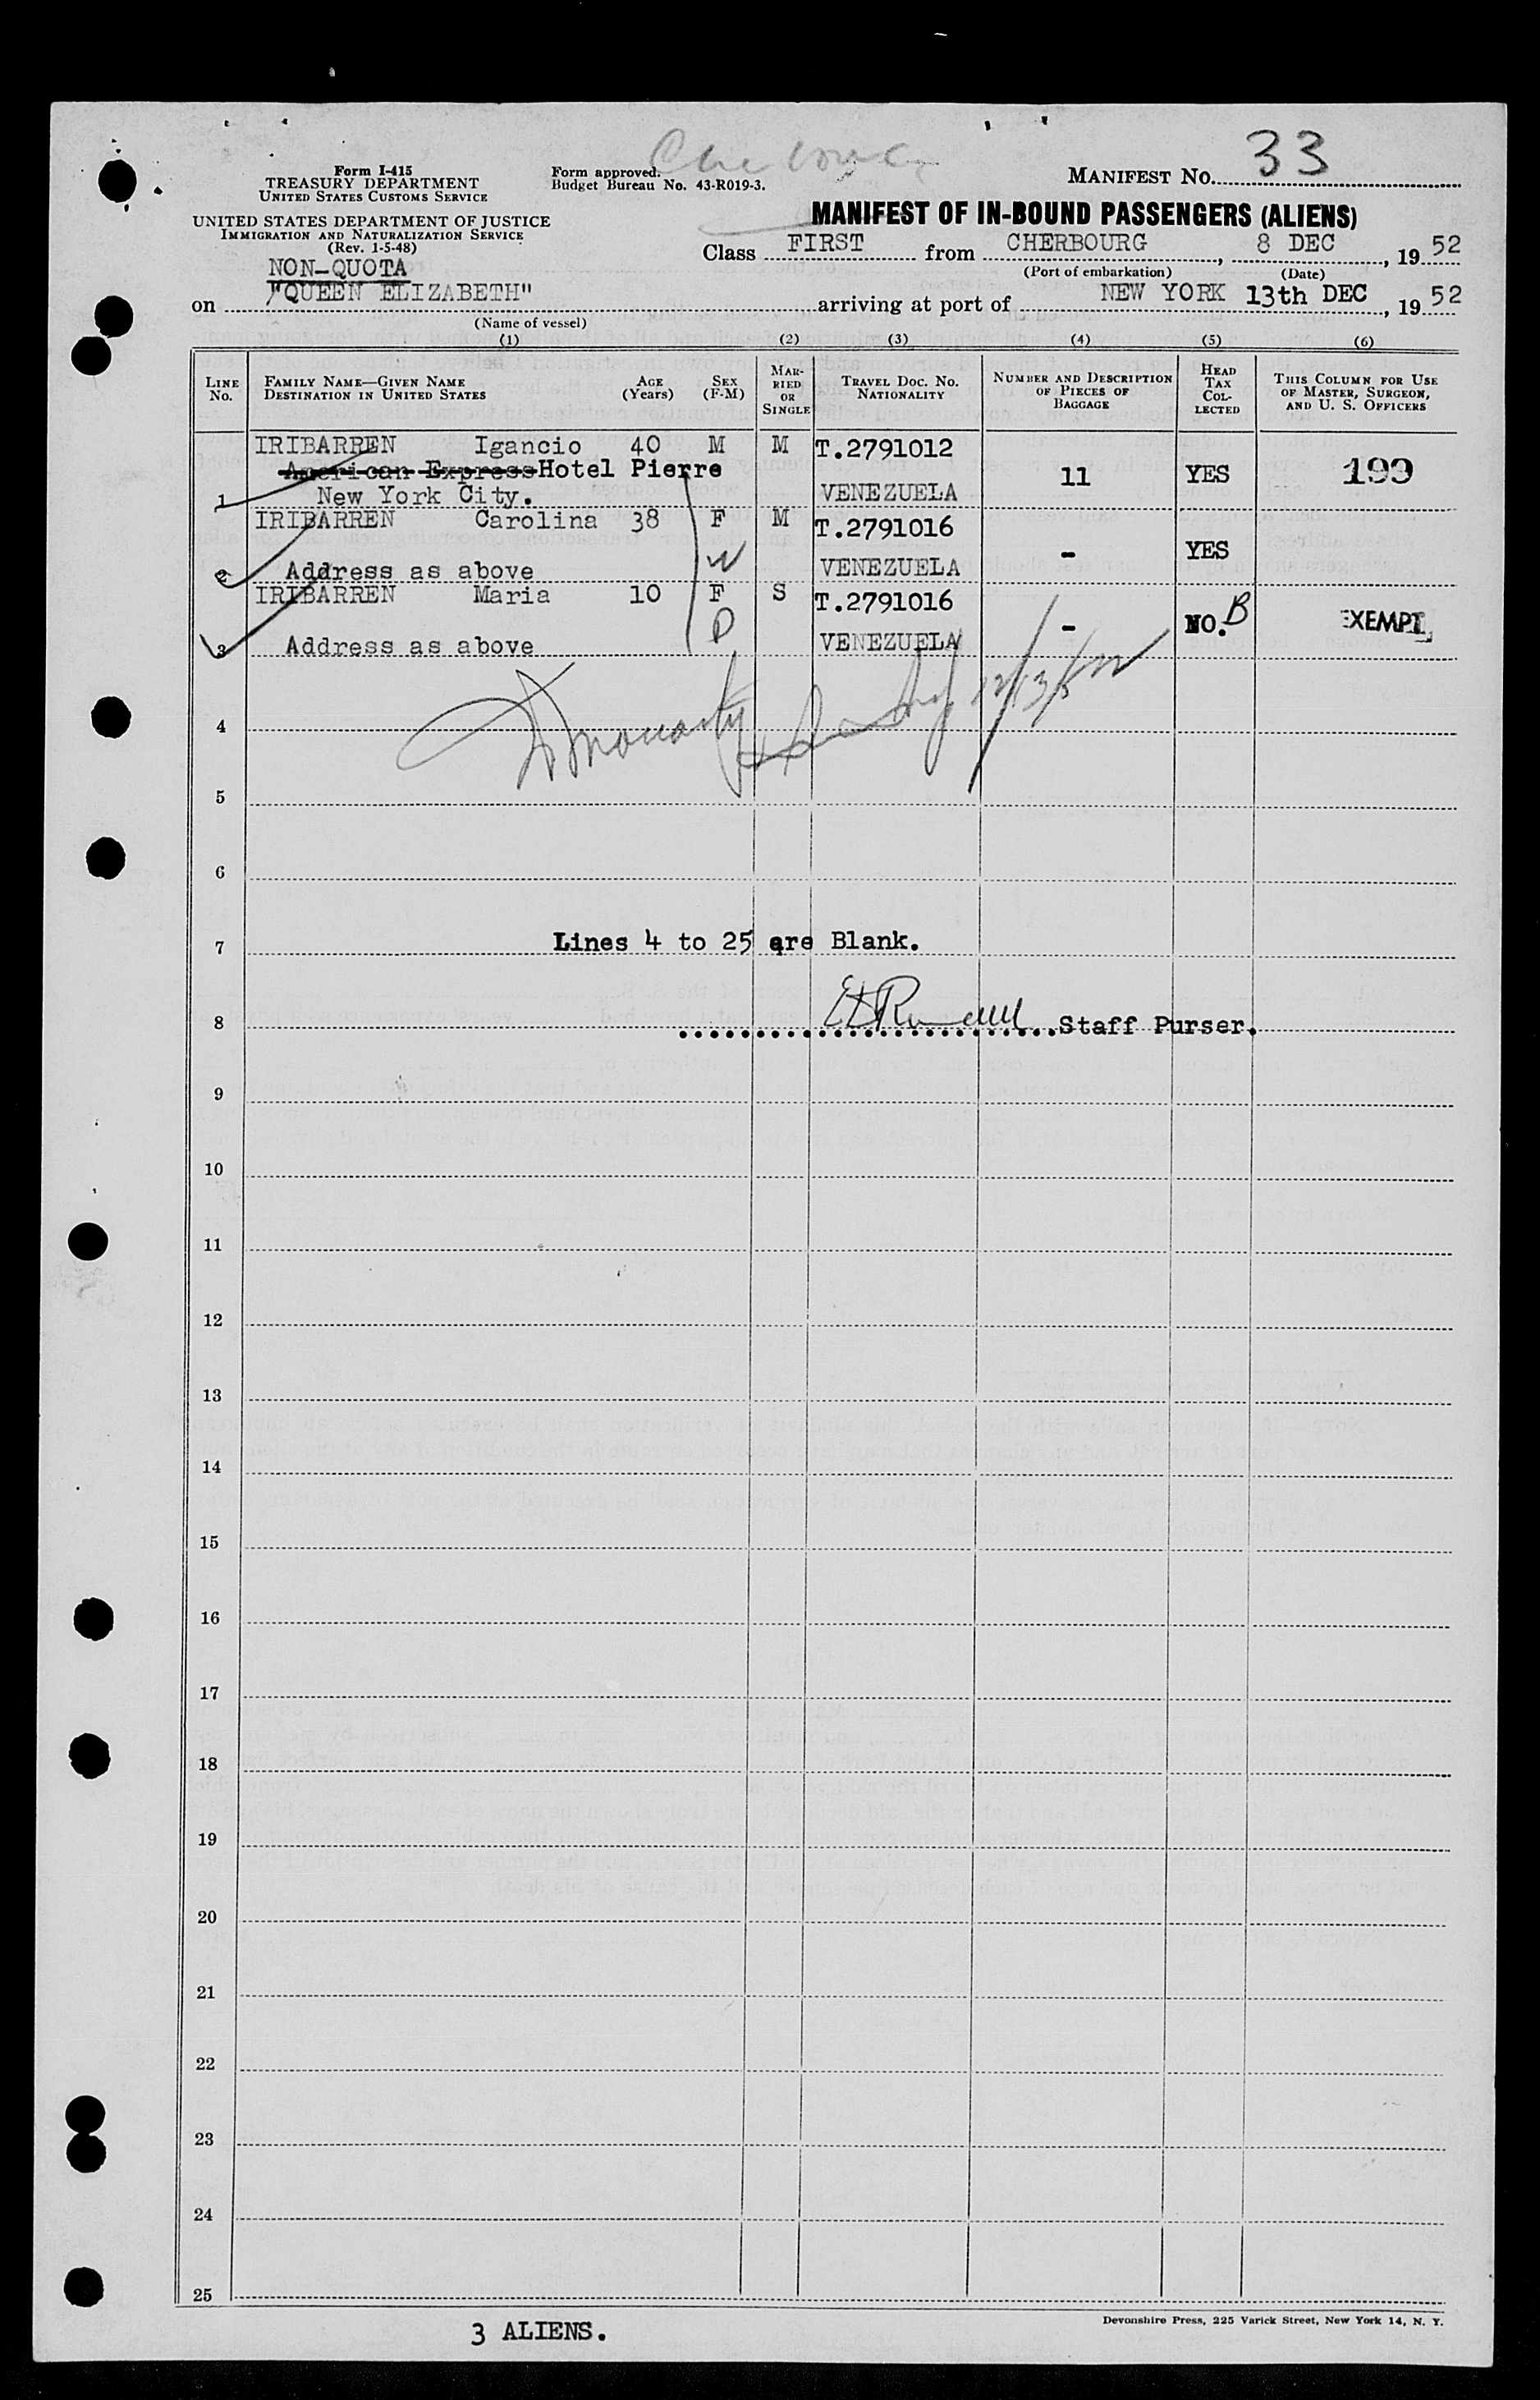 Form I-415
TREASURY DEPARTMENT
UNITED STATES CUSTOMS SERVICE
UNITED STATES DEPARTMENT OF JUSTICE
IMMIGRATION AND NATURALIZATION SERVICE
(Rev. 1-5-48)
Form approved.
Budget Bureau No. 43-R019-3.
MANIFEST NO. 33
MANIFEST OF IN-BOUND PASSENGERS (ALIENS)
Class FIRST from CHERBOURG, 8 DEC, 19 52
(Port of embarkation) (Date)
NON-QUOTA
on "QUEEN ELIZABETH" arriving at port of NEW YORK 13th DEC, 19 52
(Name of vessel)
(1) (2) (3) (4) (5) (6)
LINE NO. FAMILY NAME—GIVEN NAME DESTINATION IN UNITED STATES AGE (YEARS) SEX (F-M) MARRIED OR SINGLE TRAVEL DOC. NO. NATIONALITY NUMBER AND DESCRIPTION OF PIECES OF BAGGAGE HEAD TAX COLLECTED THIS COLUMN FOR USE OF MASTER, SURGEON, AND U. S. OFFICERS
IRIBARREN Igancio 40 M M T.2791012
American Express Hotel Pierre 11 YES 199
1 New York City. VENEZUELA
IRIBARREN Carolina 38 F M T.2791016
W - YES
2 Address as above VENEZUELA
IRIBARREN Maria 10 F S T.2791016
D - NO. B EXEMPT
3 Address as above VENEZUELA
12/13/52
4
5
6
7 Lines 4 to 25 are Blank.
8 Staff Purser.
9
10
11
12
13
14
15
16
17
18
19
20
21
22
23
24
25
Devonshire Press, 225 Varick Street, New York 14, N. Y.
3 ALIENS.